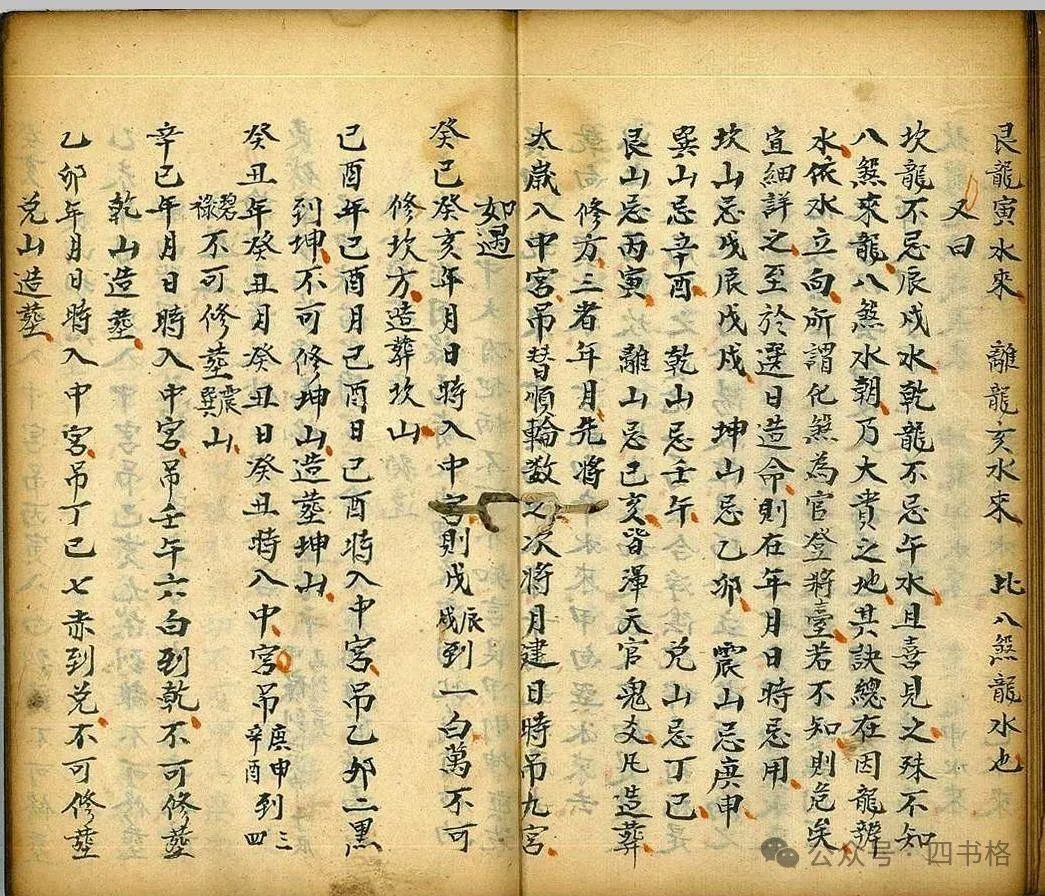 艮龍寅水來　離龍亥水來　此八煞龍水也
又曰
坎龍不忌辰戌水乾龍不忌午水且喜見之殊不知
八煞來龍八煞水朝乃大貴之地其訣總在因龍辨
水依水立向所謂化煞為官登將臺若不知則危矣
宜細詳之至於選日造命則在年月日時忌用
坎山忌戊辰戊戌　坤山忌乙卯　震山忌庚申
巽山忌辛酉　乾山忌壬午　兌山忌丁巳
艮山忌丙寅　離山忌己亥皆渾天官鬼爻凡造葬
修方三者年月先將
太歲入中宮吊替順輪数之次將月建日時吊九宮
如遇
癸巳癸亥年月日時入中宮則戊辰戊戌到一白萬不可
修坎方造葬坎山
己酉年己酉月己酉日己酉時入中宮吊乙卯二黑
到坤不可修坤山造塟坤山
癸丑年癸丑月癸丑日癸丑時入中宮吊庚申辛酉到三四
碧祿不可修塟震巽山
辛巳年月日時入中宮吊壬午六白到乾不可修塟
乾山造塟
乙卯年月日時入中宮吊丁巳七赤到兌不可修塟
兌山造塟
公众号·四书格